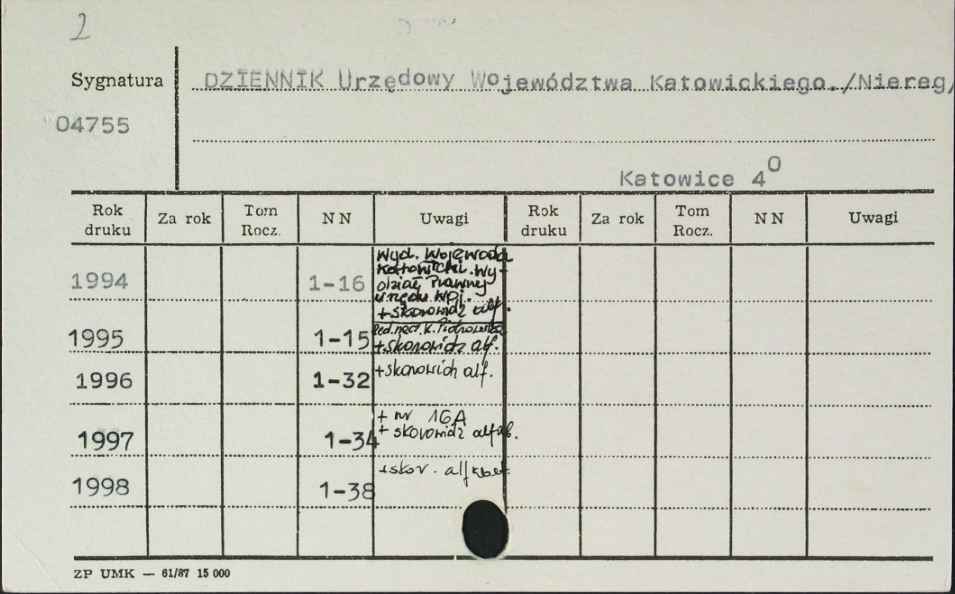 2
Sygnatura
DZIENNIK Urzędowy Województwa Katowickiego./Niereg/
04755
Katowice 4⁰
Rok druku Za rok Tom Rocz. NN Uwagi Rok druku Za rok Tom Rocz. NN Uwagi
1994 1-16 Wyd. Wojewoda
Katowicki. Wy-
dział Prawny
Urzędu Woj.
+ skorowidz alf.
1995 1-15 Red. nacz. K.
+ skorowidz alf.
1996 1-32 + skorowidz alf.
1997 1-34 + nr 16A
+ skorowidz alfab.
1998 1-38 + skor. alfabet
ZP UMK — 61/87 15 000